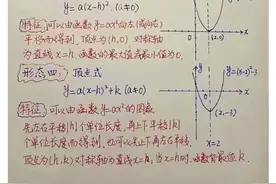 y=a(x-h)². (a≠0)
特征：可以由函数 y=ax² 向左(或向右)
平移 得到，顶点为(h,0) 对称轴
为直线 x=h，函数的最大值或最小值为0.
x=2
形态四：顶点式
y=a(x-h)²+k (a≠0)
y=(x-2)²-3
特征：可以由函数 y=ax² 的图象
先左右平移|h|个单位长度，再上下平移|k|
个单位長度而得到，也可以先上下再左右平移，
顶点为(h,k) 对称轴为直线x=h，当x=h时，函数有最值k
(2,-3)
x=2